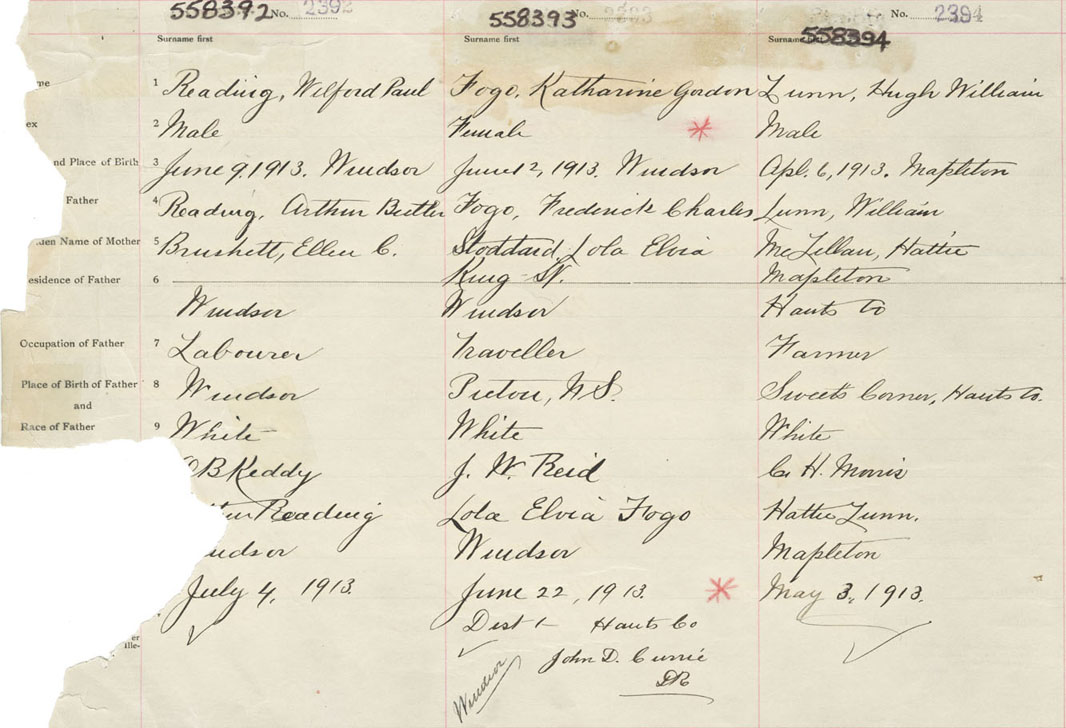 558392 No. 2392 558393 No. 2393 558394 No. 2394
Surname first Surname first Surname
me 1 Reading, Wilford Paul Fogo, Katharine Gordon Lunn, Hugh William
ex 2 Male Female Male
nd Place of Birth 3 June 9, 1913. Windsor June 12, 1913. Windsor Apl. 6, 1913. Mapleton
Father 4 Reading, Arthur Butler Fogo, Frederick Charles Lunn, William
den Name of Mother 5 Brushett, Ellen C. Stoddard, Lola Elvia McLellan, Hattie
King St. Mapleton
esidence of Father 6
Windsor Windsor Hants Co
Occupation of Father 7 Labourer Traveller Farmer
Place of Birth of Father 8 Windsor Pictou, N.S. Sweets Corner, Hants Co.
and
Race of Father 9 White White White
B Keddy J. W. Reid H. Morris
Reading Lola Elvia Fogo Hattie Lunn.
indsor Windsor Mapleton
July 4, 1913. June 22, 1913. May 3, 1913.
Dist 1 Hants Co
er
Ille-
John D. Currie
DR
Windsor